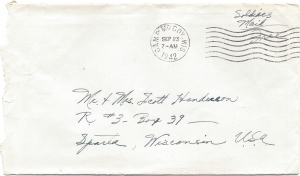 CAMP McCOY, WIS.
SEP 23
7-AM
1942
Soldiers
Mail
Free
Mr. & Mrs. Scott Henderson
R #3 - Box 39 —
Sparta, Wisconsin U.S.A